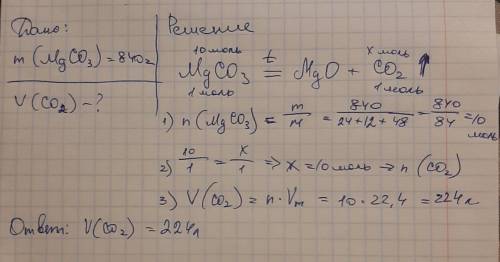 Дано:
m (MgCO₃) = 840г
V(CO₂) - ?
Решение
10 моль x моль
MgCO₃ =ᵗ MgO + CO₂ ↑
1 моль 1 моль
1) n (MgCO₃) = m/M = 840/(24+12+48) = 840/84 = 10 моль
2) 10/1 = x/1 => x = 10 моль → n (CO₂)
3) V(CO₂) = n · Vm = 10 · 22,4 = 224л
Ответ: V(CO₂) = 224л